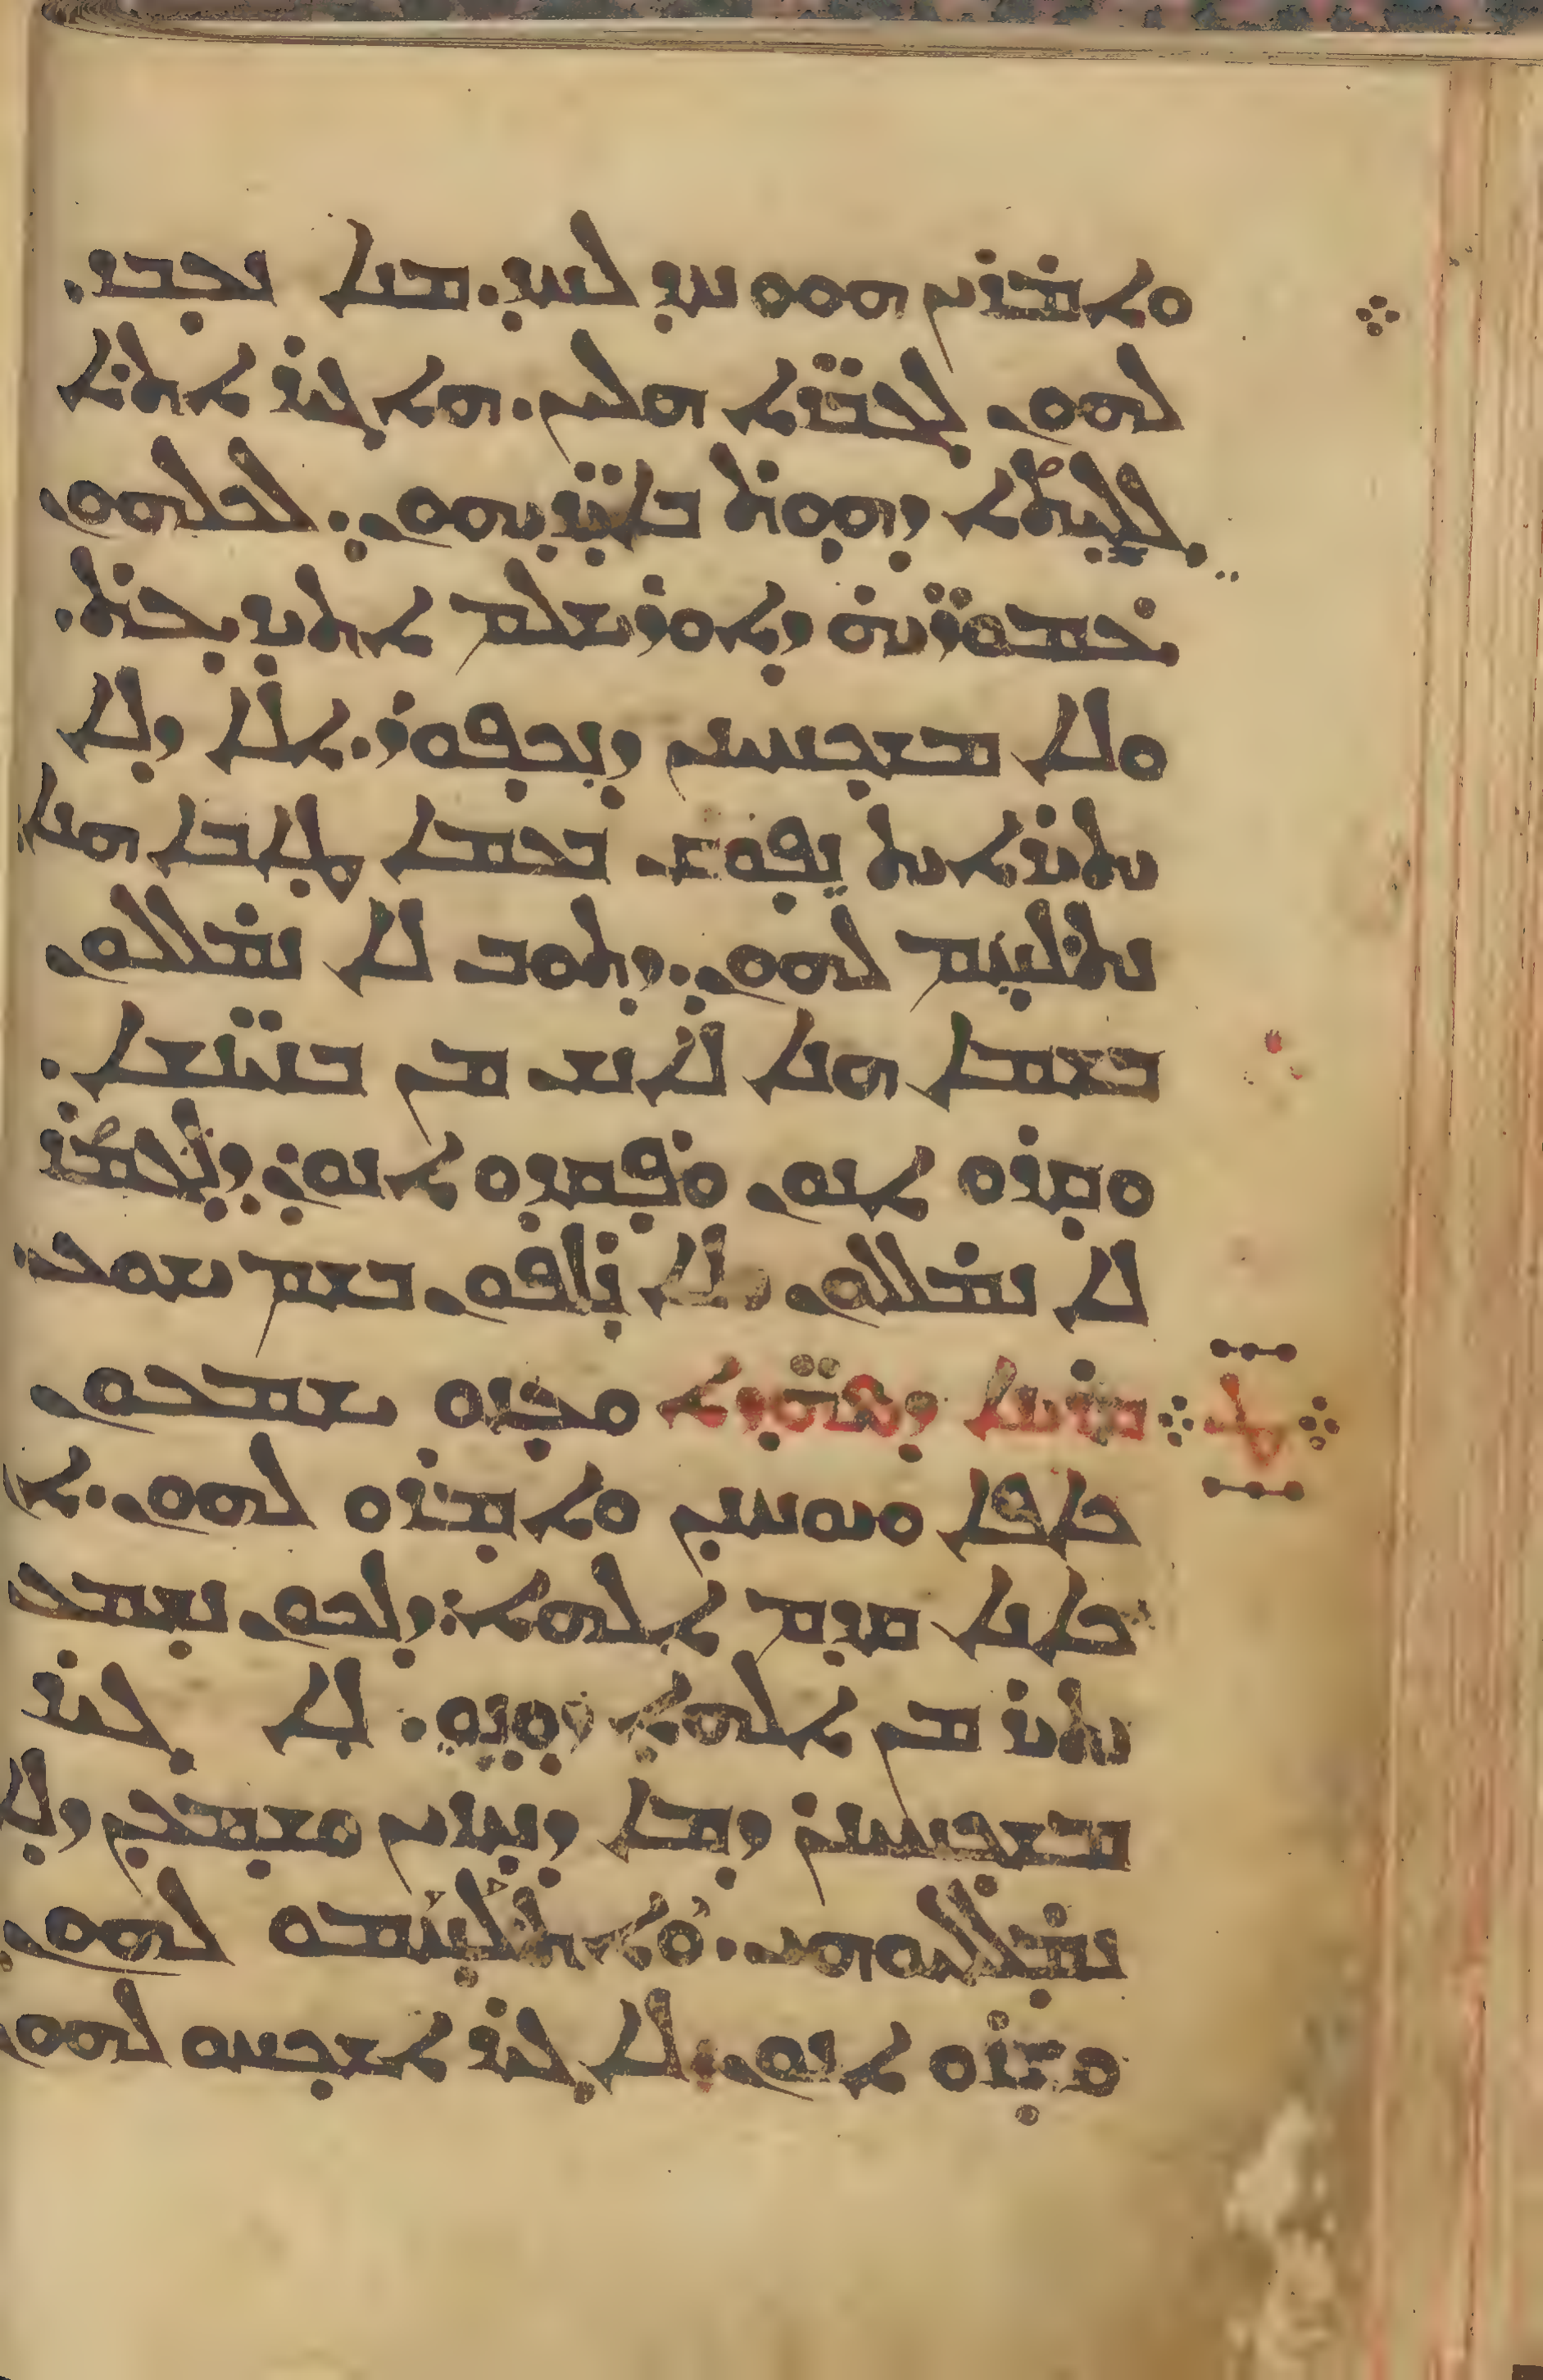 ܘܐܡܪܝܢ ܗܘܘ ܚܕ ܠܚܕ. ܡܢܐ ܢܥܒܕ.
ܠܗܘܢ ܠܓܒܪ̈ܐ ܗܠܝܢ. ܗܐ ܓܝܪ ܐܬܐ
ܓܠܝܬܐ ܕܗܘܬ ܒܐܝ̈ܕܝܗܘܢ. ܠܟܠܗܘܢ
ܥܡܘܪ̈ܝܗ ܕܐܘܪܫܠܡ ܐܬܝܕܥܬ.
ܘܠܐ ܡܫܟܚܝܢܢ ܕܢܟܦܘܪ. ܐܠܐ ܕܠܐ
ܝܬܝܪܐܝܬ ܢܦܘܩ ܒܥܡܐ ܛܐܒܐ ܗܢܐ
ܢܬܠܚܡ ܠܗܘܢ. ܕܬܘܒ ܠܐ ܢܡܠܠܘܢ
ܒܫܡܐ ܗܢܐ ܠܐܢܫ ܡܢ ܒܢܝ̈ܢܫܐ.
ܘܩܪܘ ܐܢܘܢ ܘܦܩܕܘ ܐܢܘܢ: ܕܠܓܡܪ
ܠܐ ܢܡܠܠܘܢ ܘܠܐ ܢܐܠܦܘܢ ܒܫܡ ܝܫܘܥ.
ܕܣܗ̈ܕܐ ܘܥܢܘ ܫܡܥܘܢ
ܟܐܦܐ ܘܝܘܚܢܢ ܘܐܡܪܘ ܠܗܘܢ.
ܟܐܢܐ ܩܕܡ ܐܠܗܐ: ܕܠܟܘܢ ܢܫܡܥ
ܝܬܝܪ ܡܢ ܐܠܗܐ ܕܘܢܘ. ܠܐ ܓܝܪ
ܡܫܟܚܝܢܢ ܕܡܐ ܕܚܙܝܢ ܘܫܡܥܢ ܕܠܐ
ܢܡܠܠܘܗܝ. ܘܐܬܠܚܡܘ ܠܗܘܢ
ܘܫܪܘ ܐܢܘܢ. ܠܐ ܓܝܪ ܐܫܟܚܘ ܠܗܘܢ